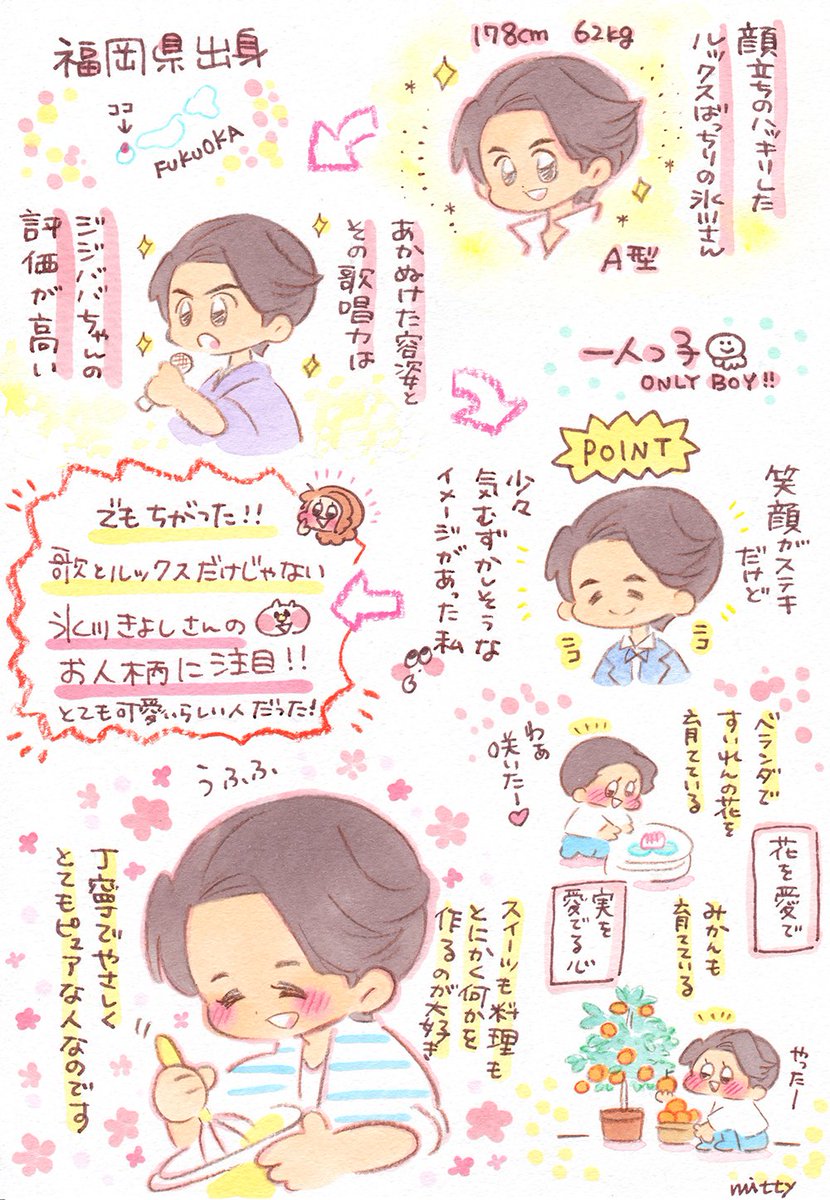 178cm 62kg
顔立ちのハッキリした
ルックスばっちりの氷川さん
A型
福岡県出身
ココ
FUKUOKA
あかぬけた容姿と
その歌唱力は
ジジババちゃんの
評価が高い
一人っ子
ONLY BOY!!
POINT
笑顔がステキ
だけど
ニコ
ニコ
少々
気むずかしそうな
イメージがあった私
でもちがった!!
歌とルックスだけじゃない
氷川きよしさんの
お人柄に注目!!
とても可愛いらしい人だった!
ベランダで
すいれんの花を
育てている
わぁ
咲いたー♥
花を愛で
実を
愛でる心
みかんも
育てている
やったー
うふふ
スイーツも料理も
とにかく何かを
作るのが大好き
丁寧でやさしく
とてもピュアな人なのです
mitty